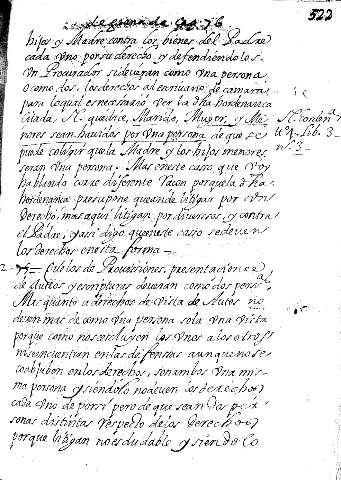 522
hijos y Madre contra los bienes del Padre
cada Vno por su derecho y defendiendolos
Vn Procurador si deueran como Vna persona
o como dos, los derechos al escriuano de camara
para lo qual es necessario Ver la dha hordenança
citada, que dice, Marido, Muger, y Me
nores sean hauidos por Vna persona de que se
puede colegir que la Madre y los hijos menores
seran Vna persona. Mas en este caso que Voy
hablando corre diferente raçon porque la dha
hordenança presupone que ande litigar por Vn
Derecho, mas aqui litigan por diuersos, y contra
el Padre, y assi digo que en este casso se deuen
los derechos en esta forma
2 - 75 - de Prouissiones, presentaciones
de autos y escripturas deueran como dos persas
Mas quanto a derechos de Vista de Autos no
deuen mas de como Vna persona sola Vna Vista
porque como no se excluyen los Vnos a los otros
nos encuentran en las defensas aunque no se
en los derechos, son ambos Vna mis
ma persona y siendolo no deuen los derechos
cada Vno de por si pero de que sean dos per
sonas distintas respecto de los derechos
porque litigan no es dudable y siendolo